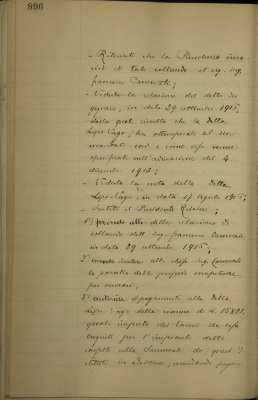 896
- Ritenuto che la Presidenza inca
ricò di tale collaudo il sig. ing.
Francesco Camerati;
- Veduta la relazione del detto in
gegnere, in data 29 settembre 1915,
dalla quale risulta che la Ditta
ha ottemperato al suo
mandato così e come sopra venne
specificato nell'ordinazione del 4
dicembre 1913;
- Veduta la nota della Ditta
in data 17 agosto 1915;
- Sentito il Presidente Relatore;
1° prende atto della relazione di
collaudo dell'ing. Francesco Camerati
in data 29 settembre 1915;
2° manda invitare allo stesso ing. Camerati
la parcella delle proprie competenze
per onorari;
3° autorizza il pagamento alla Ditta
della somma di L. 15821,
quale importo dei lavori da essa
eseguiti per l'impianto delle
nella di questi I
stituti in mandando pagare